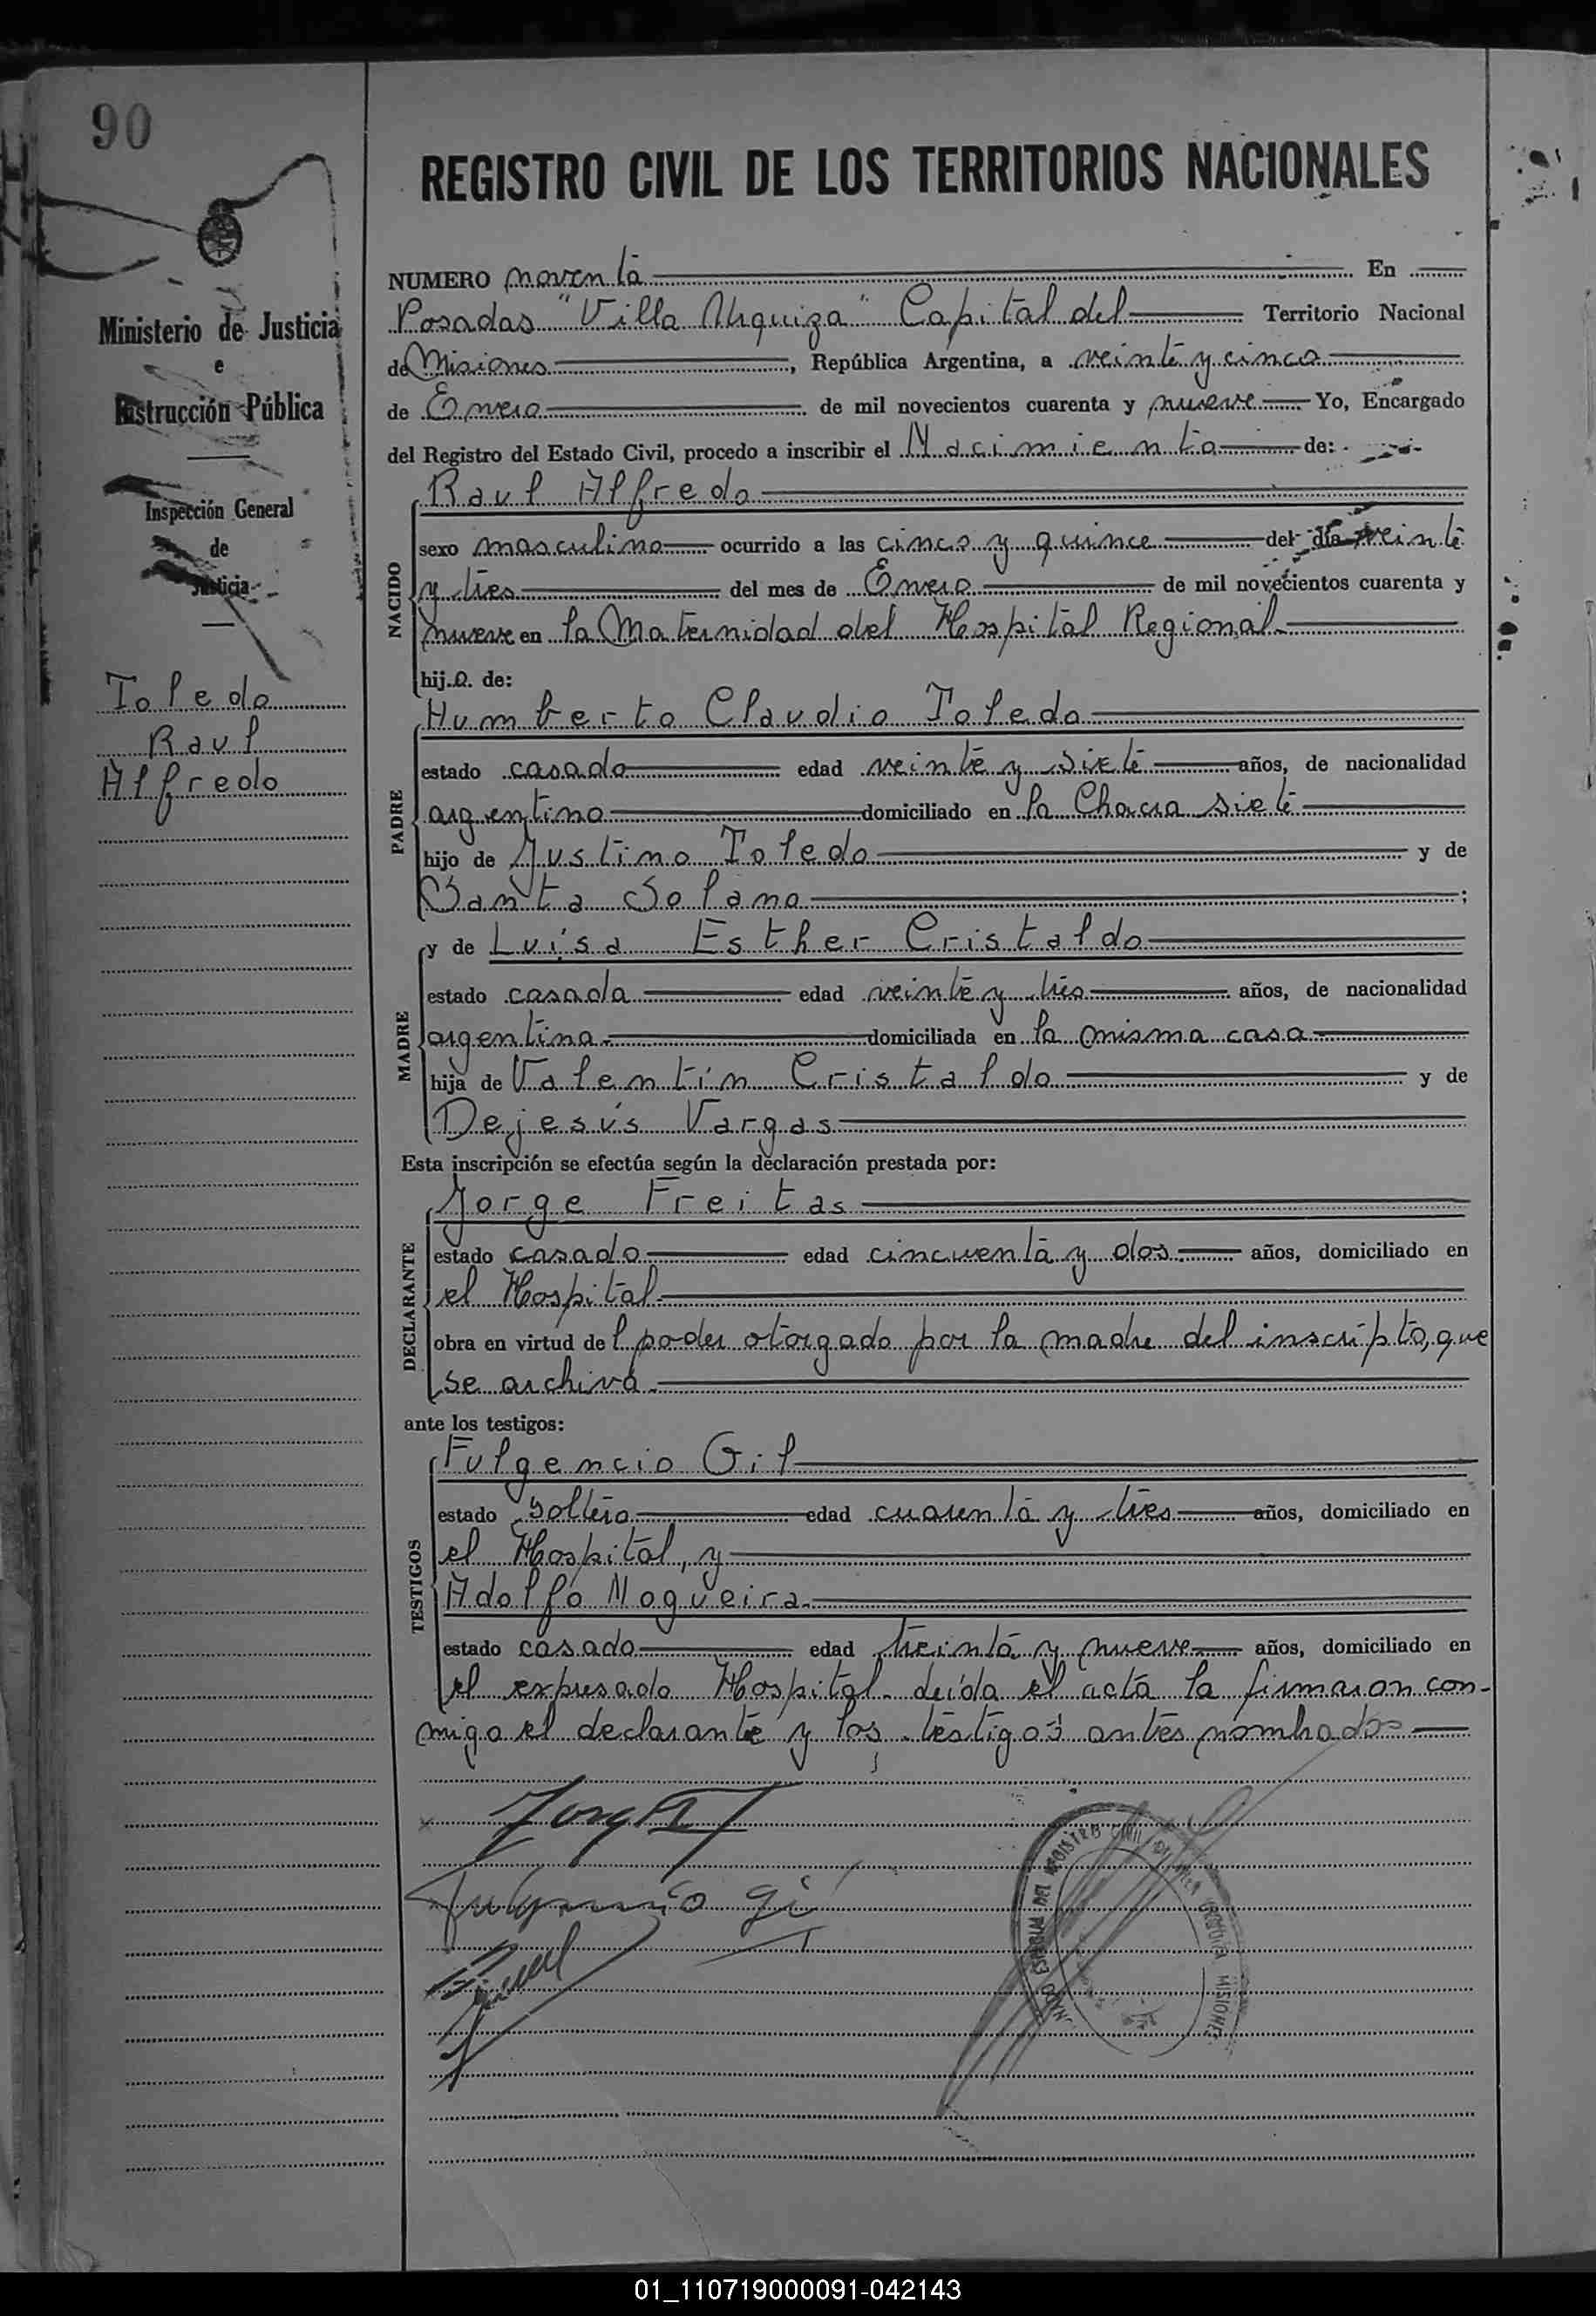 90
REGISTRO CIVIL DE LOS TERRITORIOS NACIONALES
Ministerio de Justicia
e
Instrucción Pública
Inspección General
de
Justicia
Toledo
Raul
Alfredo
NUMERO noventa En
Posadas "Villa Urquiza" Capital del Territorio Nacional
de Misiones, República Argentina, a veinte y cinco
de Enero de mil novecientos cuarenta y nueve Yo, Encargado
del Registro del Estado Civil, procedo a inscribir el Nacimiento de:
NACIDO
Raul Alfredo
sexo masculino ocurrido a las cinco y quince del día veinte
y tres del mes de Enero de mil novecientos cuarenta y
nueve en la Maternidad del Hospital Regional
hij.o. de:
PADRE
Humberto Claudio Toledo
estado casado edad veinte y siete años, de nacionalidad
argentino domiciliado en la Chacra siete
hijo de Justino Toledo y de
Santa Solano ;
MADRE
y de Luisa Esther Cristaldo
estado casada edad veinte y tres años, de nacionalidad
argentina. domiciliada en la misma casa
hija de Valentín Cristaldo y de
Dejesús Vargas
Esta inscripción se efectúa según la declaración prestada por:
DECLARANTE
Jorge Freitas
estado casado edad cincuenta y dos años, domiciliado en
el Hospital.
obra en virtud del poder otorgado por la madre del inscripto, que
se archiva.
ante los testigos:
TESTIGOS
Fulgencio Gil
estado soltero edad cuarenta y tres años, domiciliado en
el Hospital, y
Adolfo Nogueira.
estado casado edad treinta y nueve años, domiciliado en
el expresado Hospital. Leída el acta la firmaron con-
migo el declarante y los testigos antes nombrados
Fulgencio Gil
ESPECIAL DEL REGISTRO CIVIL DE VILLA URQUIZA MISIONES
01_110719000091-042143